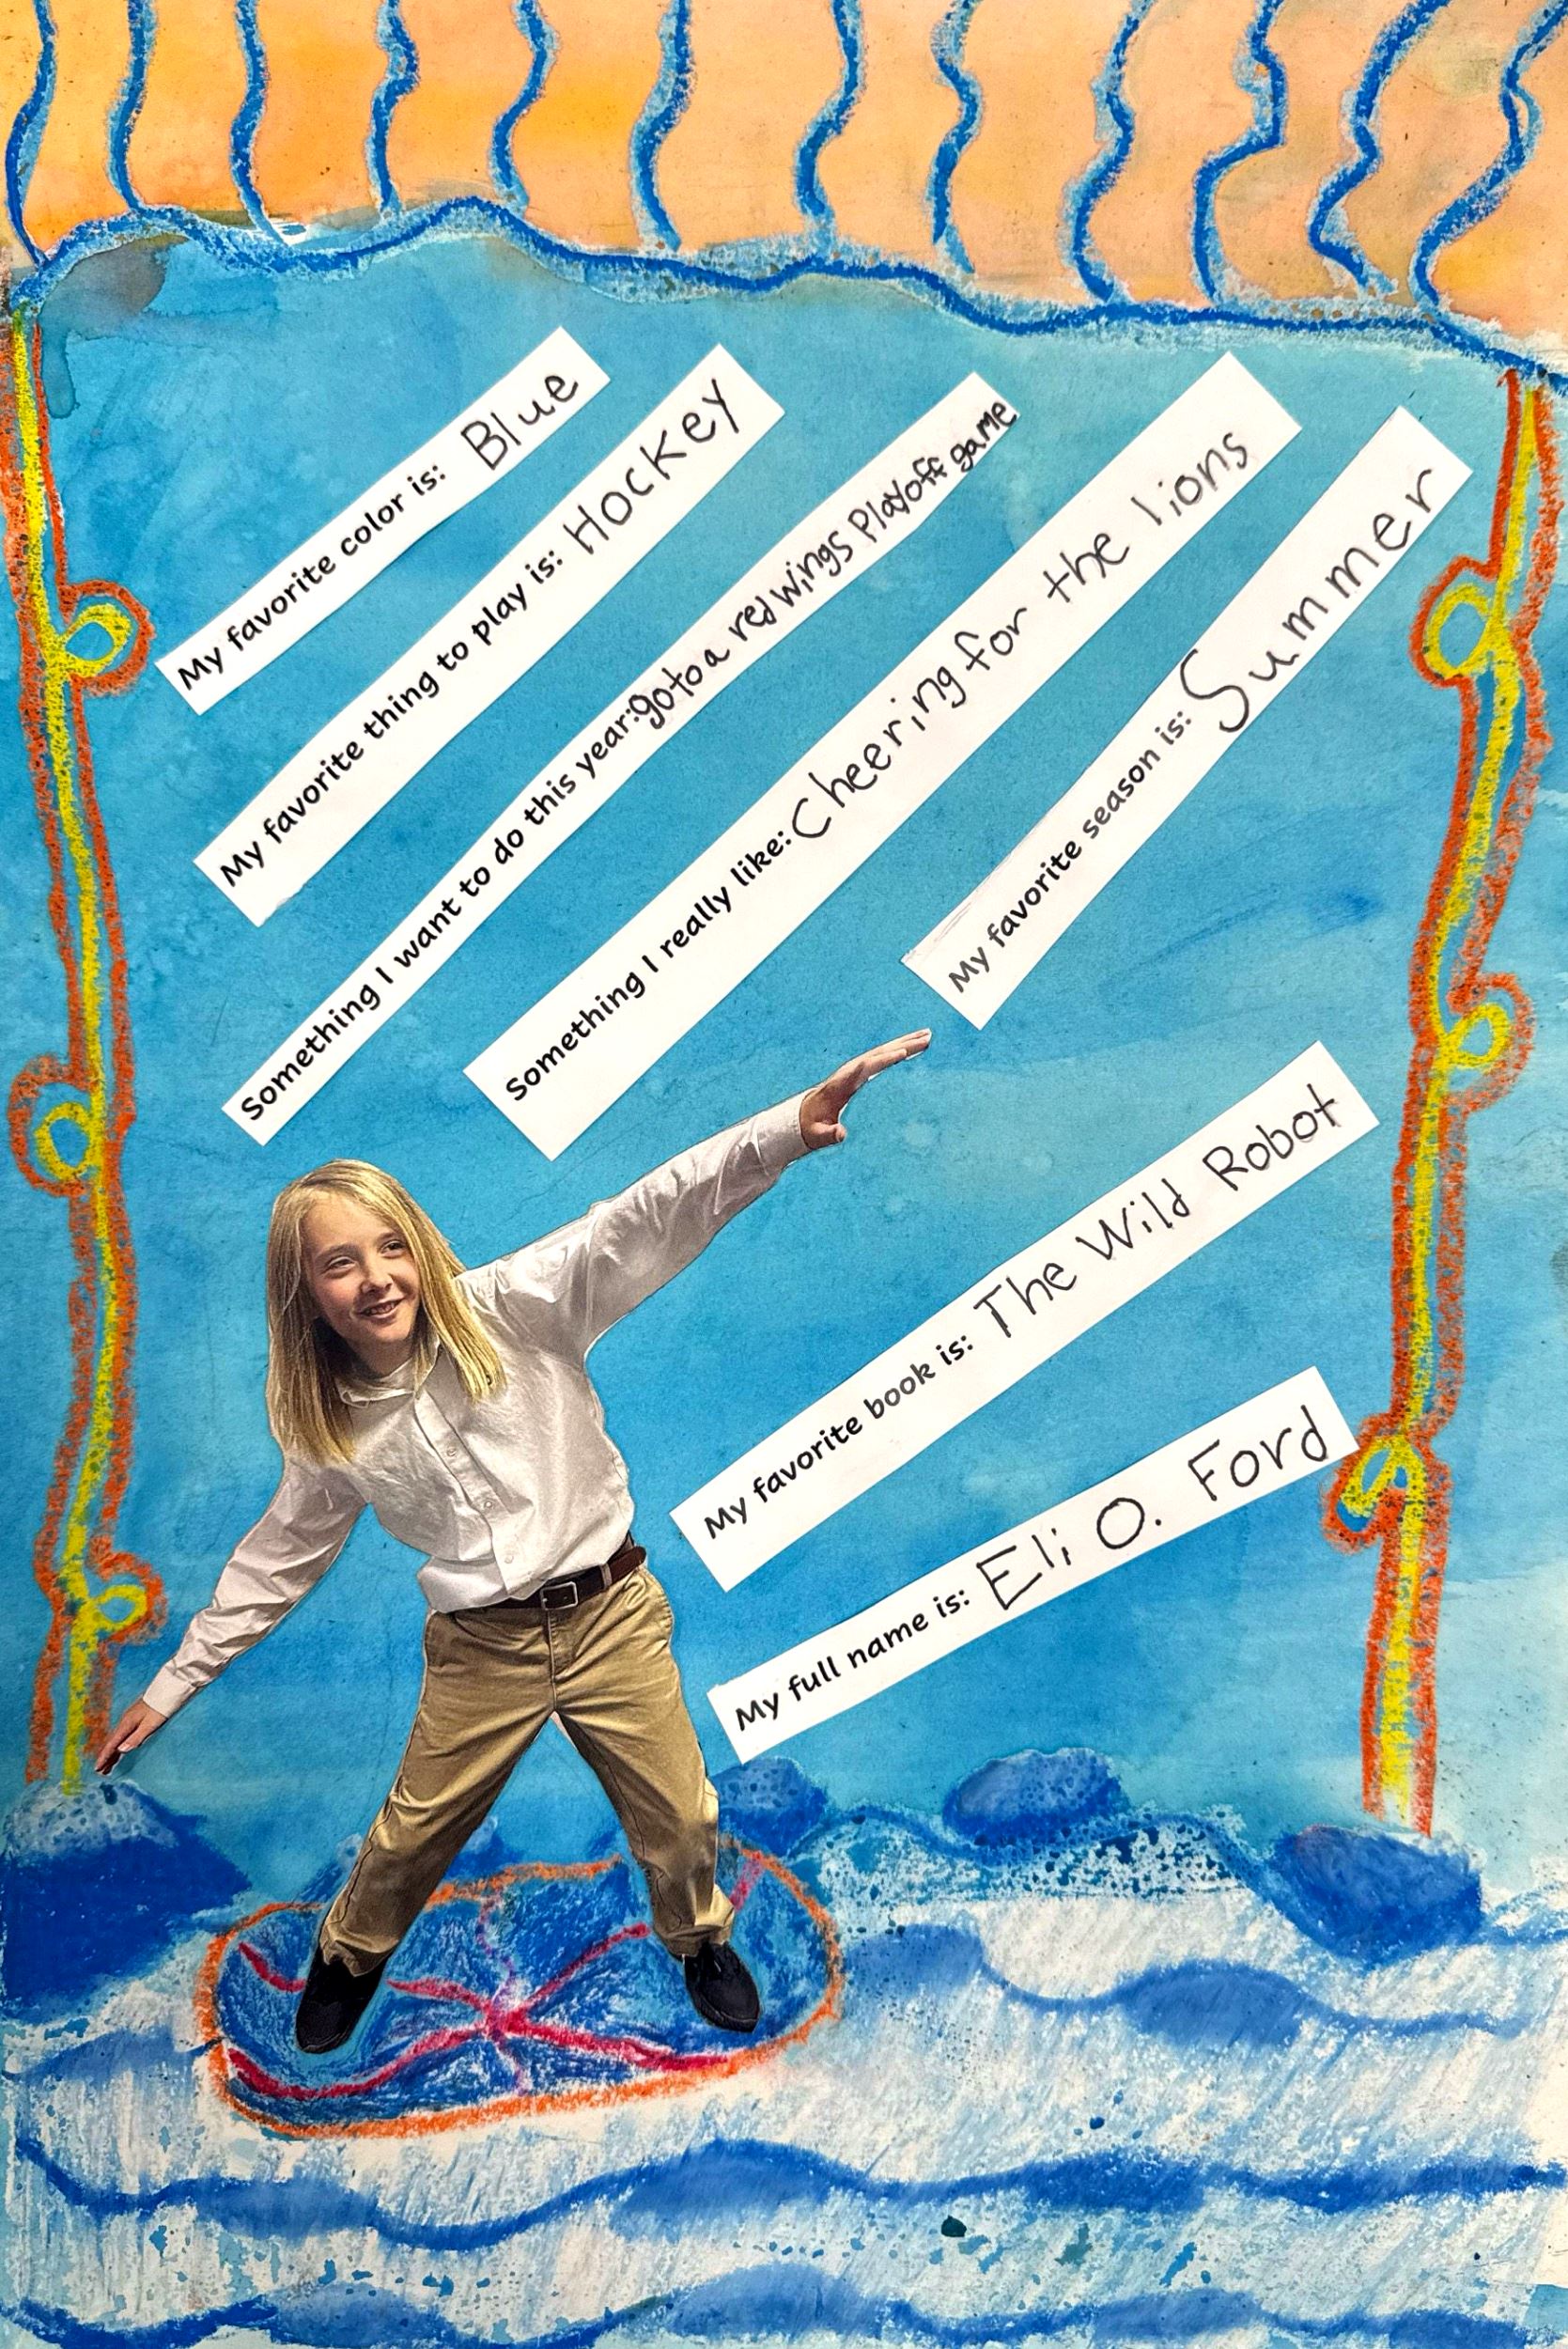 My favorite color is: Blue
My favorite thing to play is: Hockey
Something I want to do this year: go to a red wings Playoff game
Something I really like: Cheering for the lions
My favorite season is: Summer
My favorite book is: The Wild Robot
My full name is: Eli O. Ford